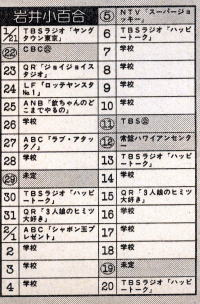 岩井小百合
1/21 TBSラジオ「ヤングタウン東京」
22 CBC㊙
23 QR「ジョイジョイスタジオ」
24 LF「ロッテヤンスタNo.1」
25 ANB「欽ちゃんのどこまでやるの」
26 学校
27 ABC「ラブ・アタック!」
28 学校
29 未定
30 TBSラジオ「ハッピートーク」
31 QR「3人娘のヒミツ大好き」
2/1 ABC「シャボン玉プレゼント」
2 学校
3 学校
4 学校
5 NTV「スーパージョッキー」
6 TBSラジオ「ハッピートーク」
7 学校
8 学校
9 学校
10 学校
11 TBS
12 常盤ハワイアンセンター
13 TBSラジオ「ハッピートーク」
14 学校
15 QR「3人娘のヒミツ大好き」
16 学校
17 学校
18 学校
19 未定
20 TBSラジオ「ハッピートーク」